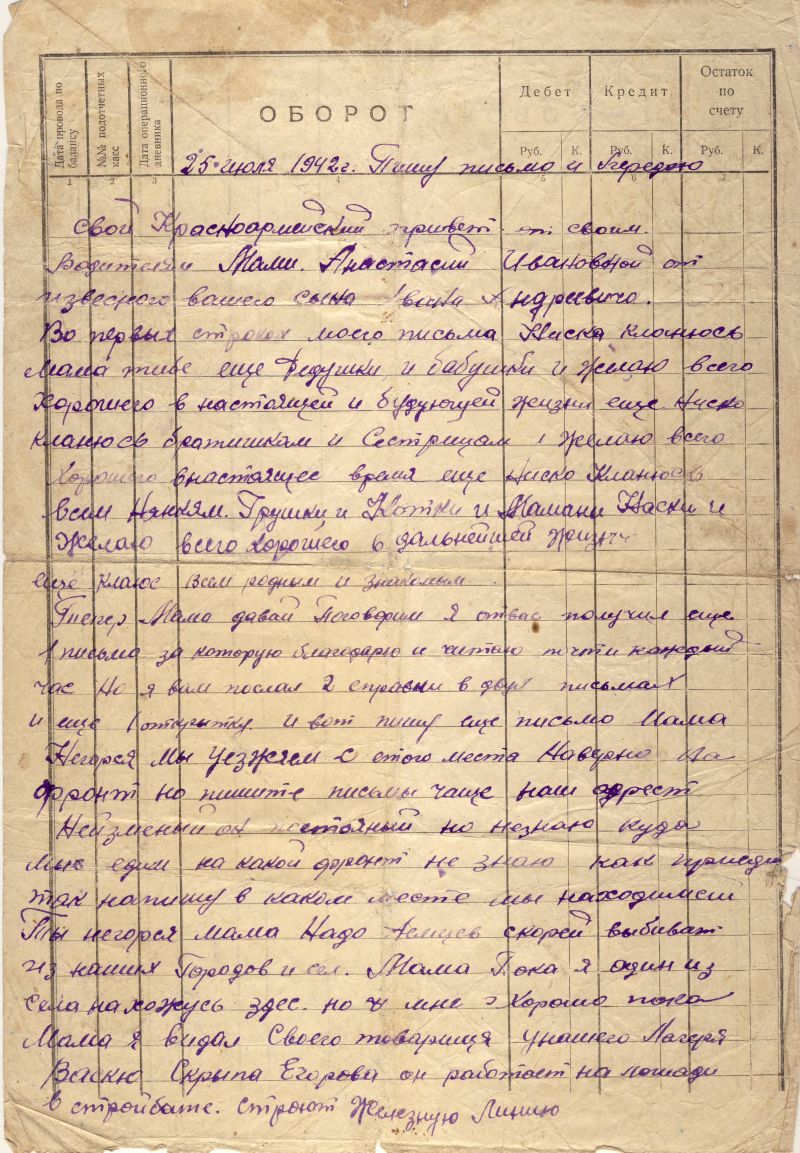 Дата провода по балансу
№№ подотчетных касс
Дата операционного дневника
ОБОРОТ
Дебет
Кредит
Остаток по счету
Руб. К. Руб. К. Руб. К.
1 2 3 4 5 6 7
25 июля 1942 г. Пишу письмо и Передаю
свой Красноармейский привет своим
Родителям Мами. Анастасий Ивановной от
извесного вашего сына Ивана Андреевича.
Во первых строках моего письма Ниска кланюсь
Мама тибе еще Дедушки и бабушки и желаю всего
Хорошего в настоящей и будующей жизни еще Ниско
кланюсь братишкам и Сестрицам и желаю всего
Хорошего внастоящее время еще Ниско Кланюсь
всем Нянкям. Грушки и Котки и Мамани Наски и
Желаю всего хорошего в дальнейшей жизни
ещё клаюс всем родным и знакомым.
Тепер Мама давай Поговорим Я отвас получил еще
1 письма за которую благодарю и читаю почти каждый
час Но я вам послал 2 справки в двух письмах
и еще 1 открытку. И вот пишу еще письмо Мама
Негорся Мы Уезжяем с етого места Наверно На
фронт но пишите письмы чаще наш адрест
Нейзменый он постояный но незнаю куда
мы едим на какой фронт не знаю как приедим
так напишу в каком месте мы находимсй
Ты негорся мама Надо Немцев скорей выбиват
из наших Городов и сел. Мама Пока я один из
села нахожусь здес. но у мне Хорошо пока
Мама я видал Своего товарища унашего Лагеря
Васкю Скрыпа Егорова он работает на лошади
в стройбате. строют Железную Линию